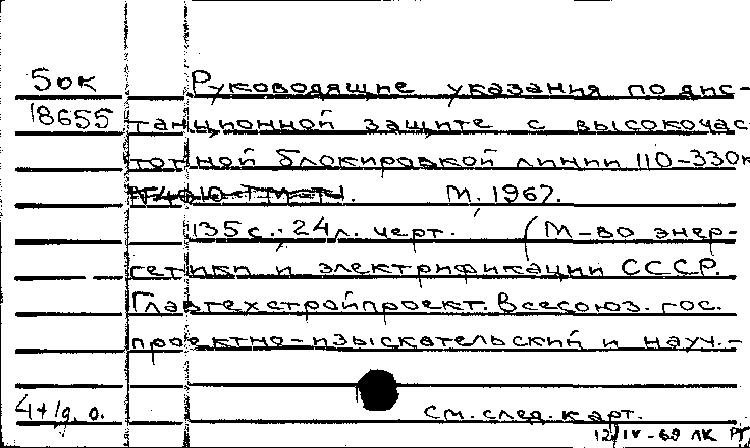 5ок
18655
Руководящие указания по дис-
танционной защите с высокочас-
тотной блокировкой линии 110-330к
М. 1967.
135 с.; 24 л. черт. (М-во энер-
гетики и электрификации СССР.
Главтехстройпроект. Всесоюз. гос.
проектно-изыскательский и науч.-
4+1д. о.
см. след. карт.
12/IV-69 ЛК РТ